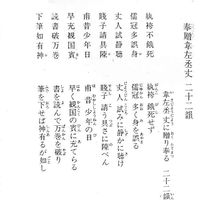 奉贈韋左丞丈 二十二韻
紈袴不餓死
儒冠多誤身
丈人試静聴
賤子請具陳
甫昔少年日
早充観国賓
読書破万巻
下筆如有神
韋左丞丈に贈り奉る 二十二韻
紈袴 餓死せず
儒冠 多く身を誤る
丈人 試みに静かに聴け
賤子 請う具さに陳べん
甫 昔 少年の日
早く観国の賓に充てらる
書を読んで万巻を破り
筆を下せば神有るが如し